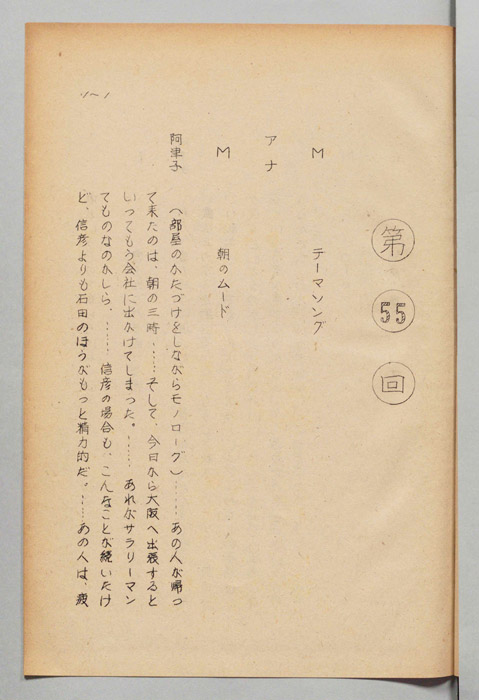 第55回
M テーマソング
アナ
M 朝のムード
阿津子 (部屋のかたづけをしながらモノローグ)……あの人が帰っ
て来たのは、朝の三時……そして、今日から大阪へ出張すると
いってもう会社に出かけてしまった。……あれがサラリーマン
てものなのかしら。……信彦の場合も、こんなことが続いたけ
ど、信彦よりも石田のほうがもっと精力的だ。……あの人は、疲
-1~1